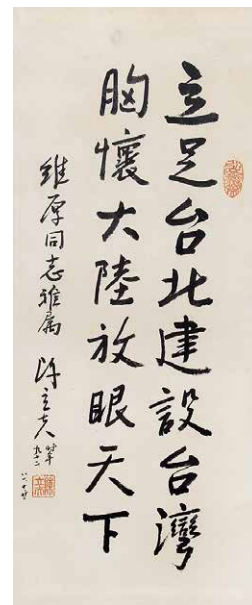 立足台北建設台灣
胸懷大陸放眼天下
維厚同志雅屬 陳立夫 時年九十二